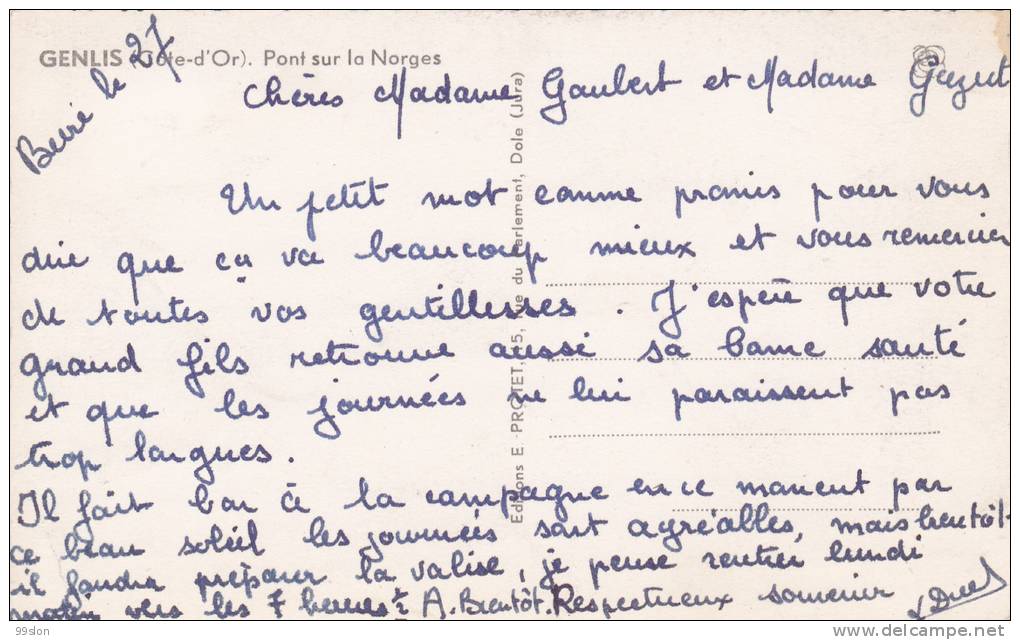 GENLIS (Côte-d'Or). Pont sur la Norges
Beire le 27
Chères Madame Gaubert et Madame
Un petit mot comme promis pour vous
dire que ça va beaucoup mieux et vous remercier
de toutes vos gentillesses. J'espère que votre
grand fils retrouve aussi sa bonne santé
et que les journées ne lui paraissent pas
trop longues.
Il fait bon à la campagne en ce moment par
ce beau soleil les journées sont agréables, mais bientôt
il faudra préparer la valise, je pense rentrer lundi
matin vers les 7 heures ½ A. Bientôt. Respectueux souvenir
Editions E. PROTET, 5, Rue du Parlement, Dole (Jura)
99slon
www.delcampe.net